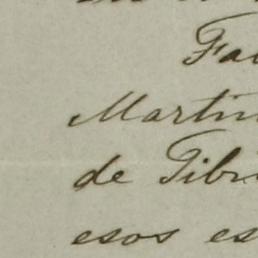 Fa
Martin
de Tibi
esos es